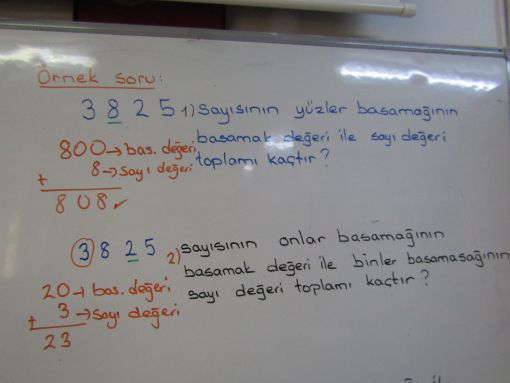 Örnek soru:
3 8 2 5 1) sayısının yüzler basamağının
800 → bas. değeri basamak değeri ile sayı değeri
+ 8 → sayı değeri toplamı kaçtır?
808 ✓
3 8 2 5 2) sayısının onlar basamağının
basamak değeri ile binler basamasağının
20 → bas. değeri sayı değeri toplamı kaçtır?
+ 3 → sayı değeri
23